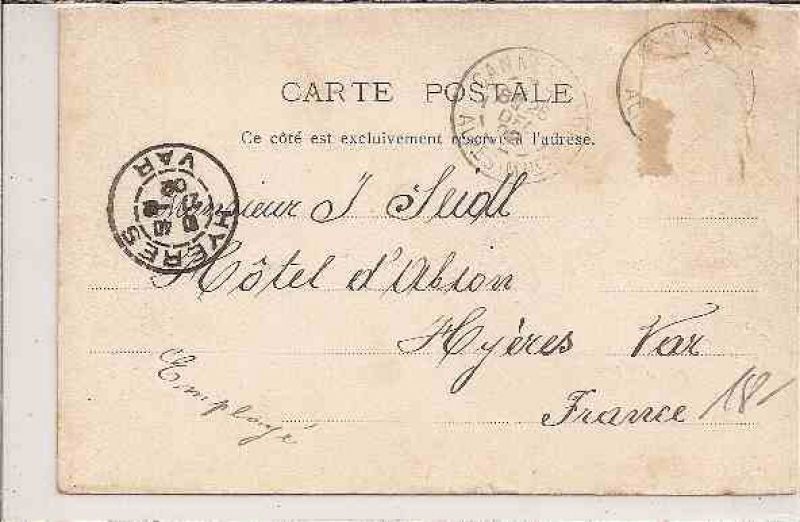 CARTE POSTALE
Ce côté est exclusivement réservé à l'adresse.
HYÈRES
VAR
02
Monsieur J Seidl
Hôtel d'Albion
Hyères Var
France
18
Employé